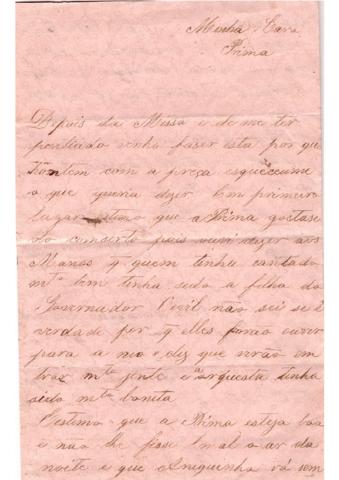 Minha Cara
Prima
Depois da Missa e de me ter
penteado venho faser esta por que
hontem com a preça esqueceume
o que queria dizer Em primeiro
lugar estimo que a Prima gostase
do comserto pois ouvi dizer aos
Manos q quem tinha cantado
mto bem tinha sido a filha do
Governador Civil não sei se é
verdade por q elles forão ouvir
para a rua e diz que virão en
trar mta jente e a orquesta tinha
sido mto bonita
Estimo que a Prima esteja boa
e não lhe fisese mal o ar da
noite e que Aniquinha vá sem